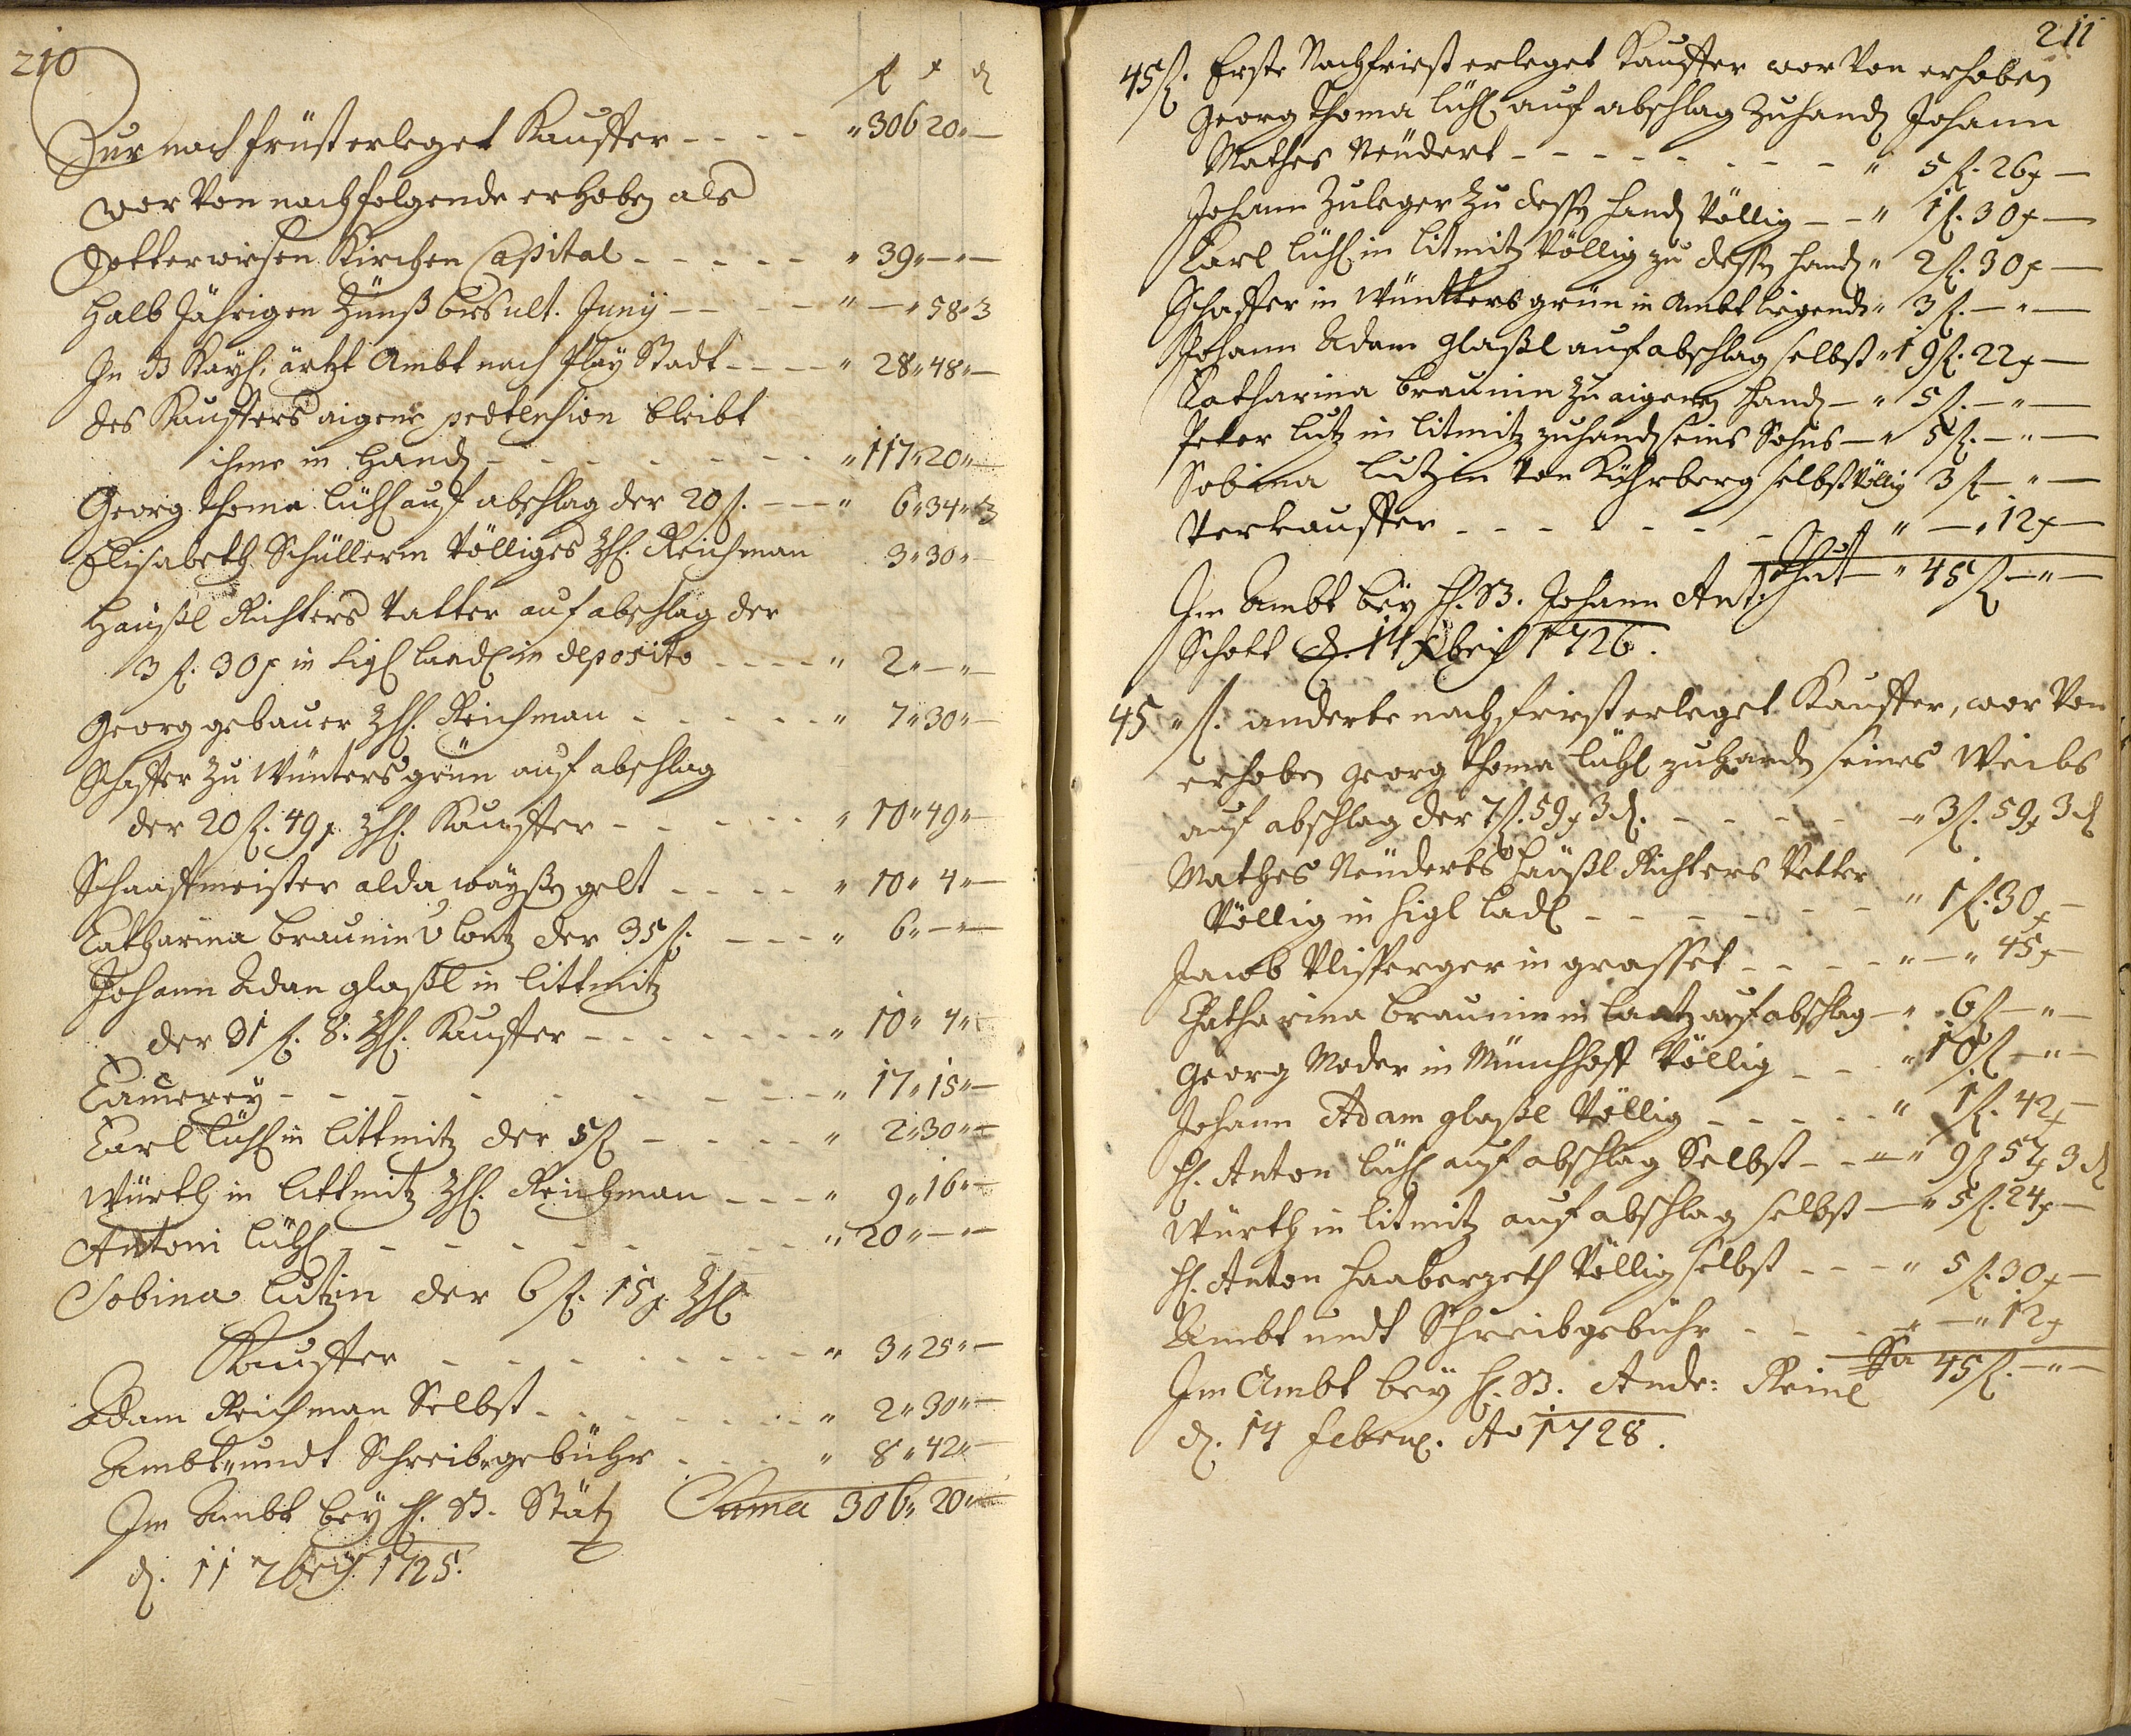 210
f x d
Zur nachfrüst erleget Kauffer - - - - " 306 20 " —
wor von nachfolgende erhoben als
Gotterwisen Kirchen Capital - - - - - " 39 " — " —
Halb Jährigen Zünß bis ult. Juny - - - - " — " 58 " 3
In d Kays. ärtzt Ambt nach Play Stadt - - - - " 28 " 48 " —
des Kauffers aigene prætension bleibt
ihme in Handen - - - - - - - " 117 " 20 " —
Georg Thoma Lühl auf abschlag der 20 f. - - - " 6 " 34 " 3
Elisabeth Schüllerin völliges Reichman 3 " 30 " —
Häußl Richters Vatter auf abschlag der
3 f. 30 x in Sigl Ladl in deposito - - - - " 2 " — " —
Georg gebauer Reichman - - - - - " 7 " 30 " —
Schaffer zu Wüntersgrün auf abschlag
der 20 f. 49 x Kauffer - - - - - " 10 " 49 " —
Schaaffmeister alda waÿßen gelt - - - - " 10 " 4 " —
Catharina Braunin v Lantz der 35 f. - - - " 6 " — " —
Johann Adan glaßl in Littmitz
der 31 f. 8. Kauffer - - - - - - - " 10 " 4 "
Camerey - - - - - - - - - - " 17 " 15 " —
Carl Lühl in Littmitz der 5 f - - - - " 2 " 30 " —
Würth in Littmitz Reichman - - - " 9 " 16 " —
Antoni Lühl - - - - - - - - " 20 " — " —
Sobina Lutzin der 6 f. 15 x
Kauffer - - - - - - - - - " 3 " 25 " —
Adam Reichman Selbst - - - - - - - " 2 " 30 " —
Ambt " undt Schreib " gebühr - - - - " 8 " 42 " —
Im Ambt bey H. B. Stätz Suma 306 " 20 " —
d. 11 7bris 1725.
211
45 f. Erste Nachfriest erleget Kauffer wor von erhoben
Georg Thoma Lühl auf abschlag zuhanden Johann
Mathes Neudert - - - - - - - - " 5 f. 26 x —
Johann Zuleger zu dessen handen völlig - - " 1 f. 30 x —
Carl Lühl in Litmitz völlig zu dessen handen " 2 f. 30 x —
Schaffer in Wüntters grün in Ambt liegend " 3 f. — " —
Johann Adam glaßl auf abschlag selbst " 19 f. 22 x —
Catharina Braunin zu aigenen Handen - " 5 f. — " —
Peter Lutz in Litmitz zuhanden seins Sohns - " 5 f. — " —
Sobina Lutzin von Kührberg selbst völlig 3 f — " —
Verkauffer - - - - - - - " — " 12 x —
thut - " 45 f — " —
Im Ambt bey H. B. Johann Ant.
Schott d. 14 Xbris 1726.
45 " f. anderte nachfrist erleget Kauffer, wor von
erhoben Georg Thoma Lühl zuhanden seines Weibs
auf abschlag der 7 f. 59 x 3 d. - - - - - " 3 f. 59 x 3 d
Mathes Neuderts Häußl Richters Vetter
völlig in Sigl Ladl - - - - - - - " 1 f. 30 x —
Jacob Ulisperger in grasset - - - - " — " 45 x —
Catharina Braunin in Lantz auf abschlag - " 6 f — " —
Georg Moder in Münchhoff völlig - - - " 10 f — " —
Johann Adam glaßl völlig - - - - - " 1 f. 42 x —
H. Anton Lühl auf abschlag Selbst - - - " 9 f 57 x 3 d
Würth in Litmitz auf abschlag selbst - " 5 f. 24 x —
H. Anton Haaberzeth völlig selbst - - - " 5 f. 30 x —
Ambt undt Schreibgebühr - - - - " — " 12 x
Sa 45 f. — " —
Im Ambt bey H. B. Andr: Reinl
d. 14 Febru. Ao 1728.